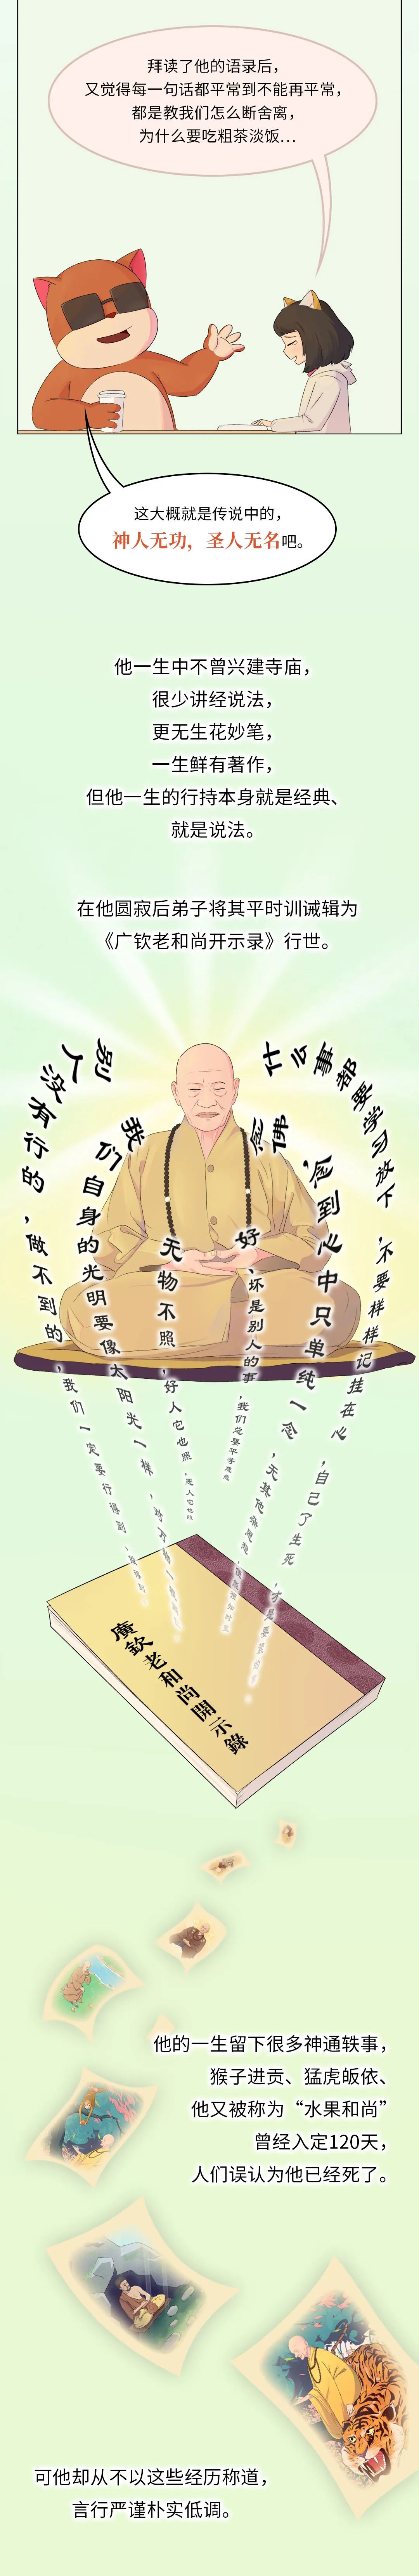 拜读了他的语录后，
又觉得每一句话都平常到不能再平常，
都是教我们怎么断舍离，
为什么要吃粗茶淡饭...
这大概就是传说中的，
神人无功，圣人无名吧。
他一生中不曾兴建寺庙，
很少讲经说法，
更无生花妙笔，
一生鲜有著作，
但他一生的行持本身就是经典、
就是说法。
在他圆寂后弟子将其平时训诫辑为
《广钦老和尚开示录》行世。
别人没有行的，做不到的，我们一定要行得到，
我们自身的光明要像太阳光一样，
无物不照，好人它也照，恶人它也照
好、坏是别人的事，我们总要平等
念佛，念到心中只单纯一念，无其他杂思
什么事都要学习放下，不要样样记挂在心，自己了生死，才是要紧
廣欽老和尚開示錄
他的一生留下很多神通轶事，
猴子进贡、猛虎皈依、
他又被称为“水果和尚”
曾经入定120天，
人们误认为他已经死了。
可他却从不以这些经历称道，
言行严谨朴实低调。